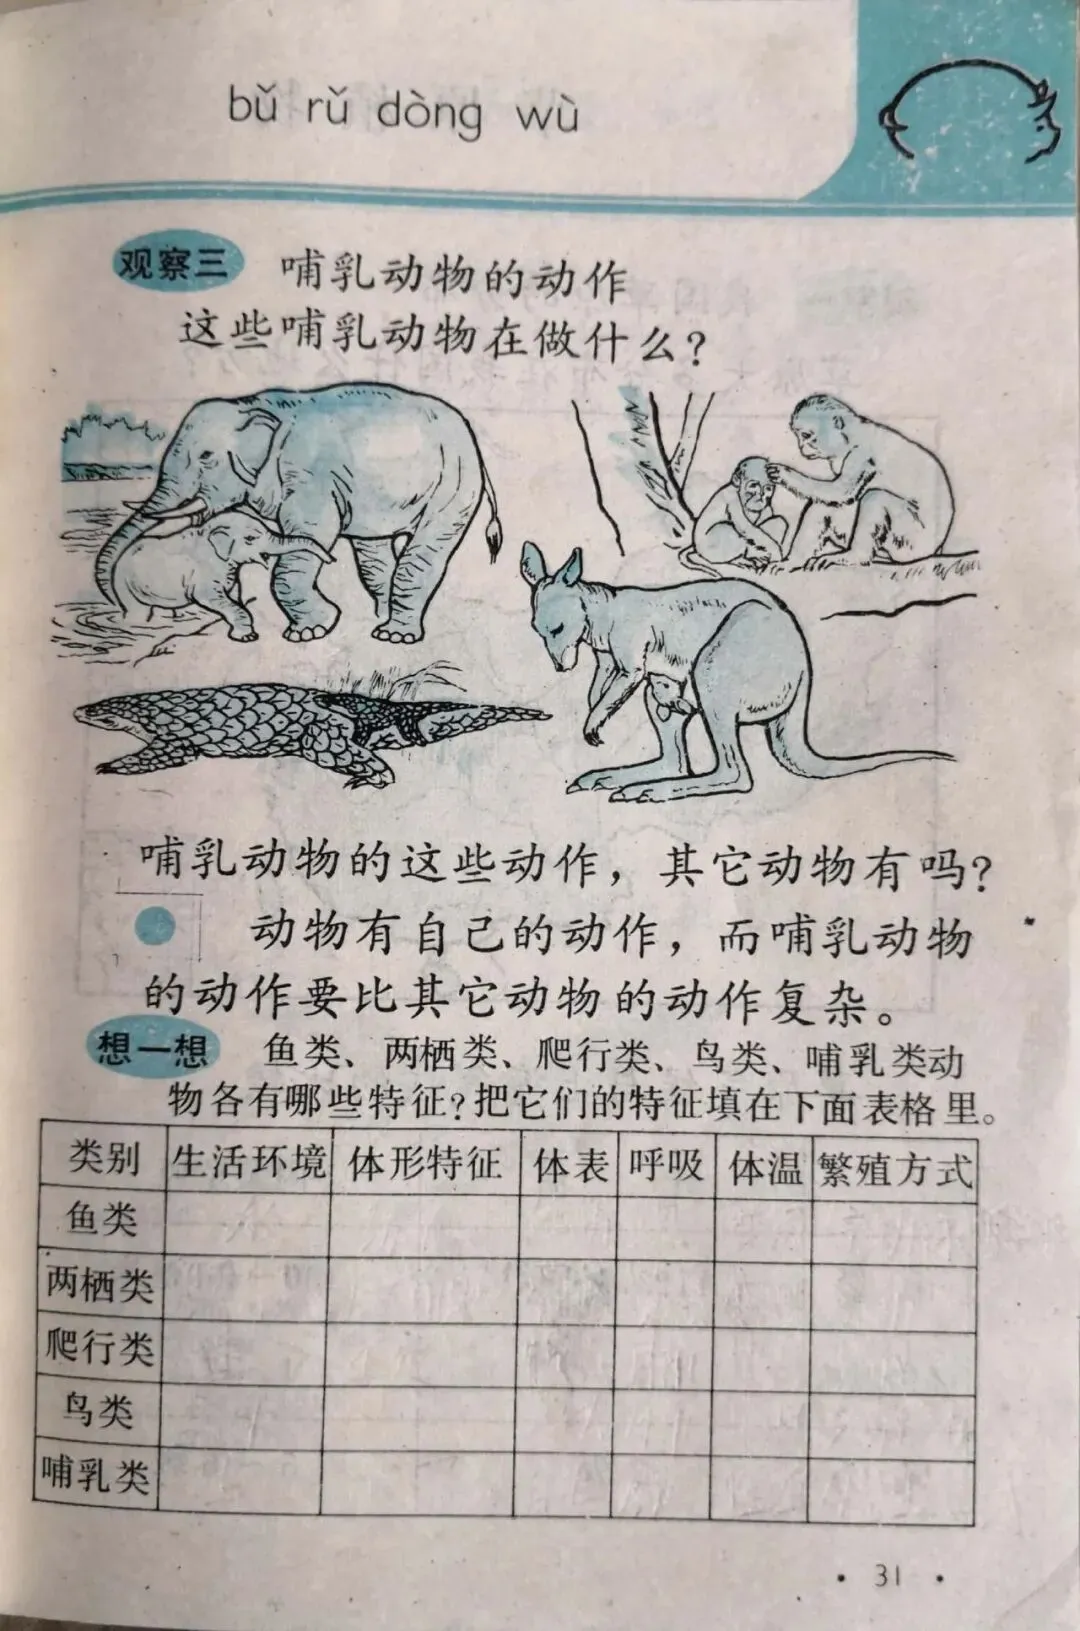 bǔ rǔ dòng wù
观察三 哺乳动物的动作
这些哺乳动物在做什么?
哺乳动物的这些动作，其它动物有吗?
动物有自己的动作，而哺乳动物
的动作要比其它动物的动作复杂。
想一想 鱼类、两栖类、爬行类、鸟类、哺乳类动
物各有哪些特征?把它们的特征填在下面表格里。
类别 生活环境 体形特征 体表 呼吸 体温 繁殖方式
鱼类
两栖类
爬行类
鸟类
哺乳类
· 31 ·